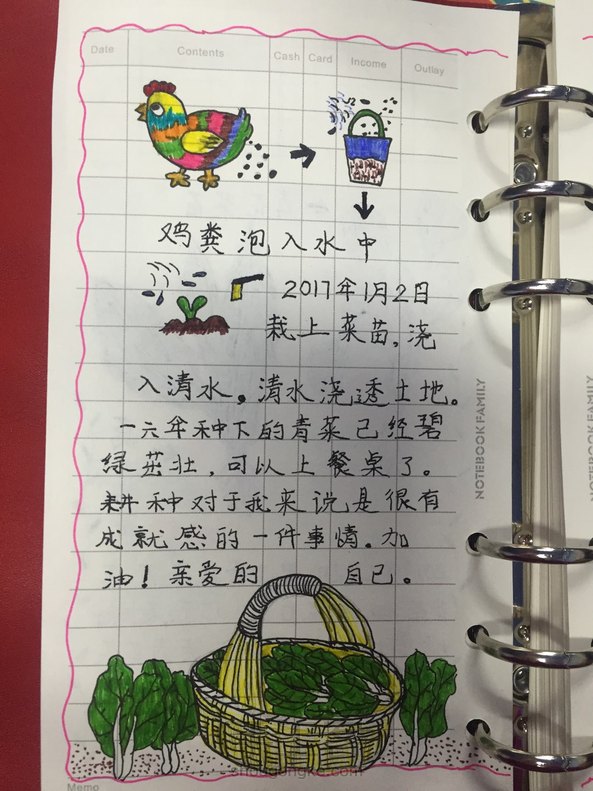 Date Contents Cash Card Income Outlay
鸡粪泡入水中
2017年1月2日
栽上菜苗,浇
入清水。清水浇透土地。
一六年种下的青菜已经碧
绿茁壮,可以上餐桌了。
耕种对于我来说是很有
成就感的一件事情。加
油!亲爱的 自己。
NOTEBOOK FAMILY
Memo
shougongke.com